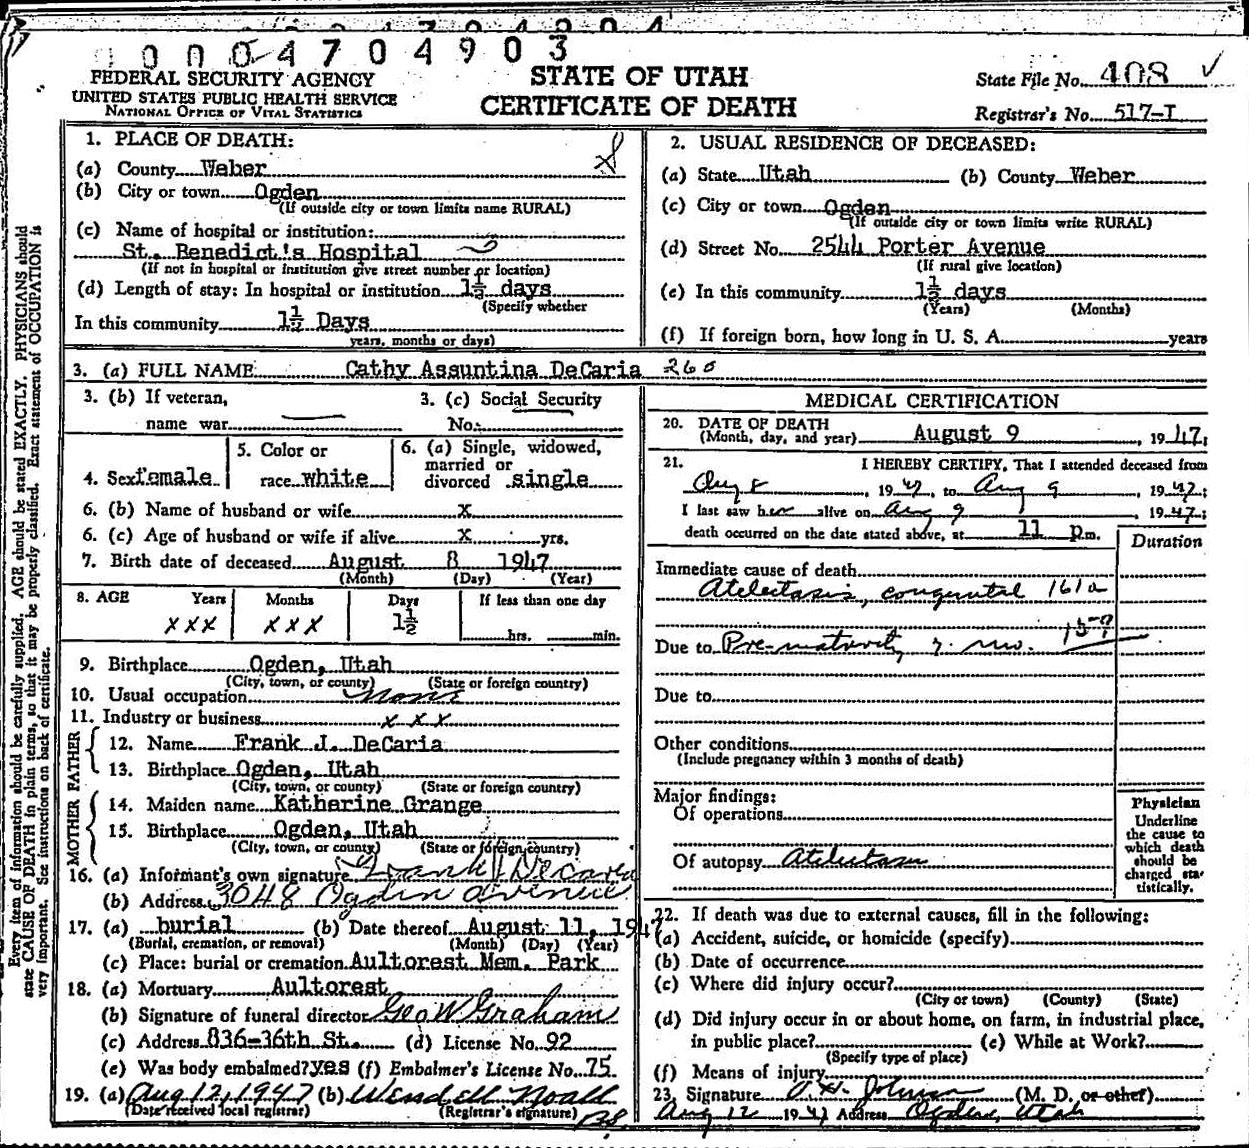 0004704903
FEDERAL SECURITY AGENCY
UNITED STATES PUBLIC HEALTH SERVICE
NATIONAL OFFICE OF VITAL STATISTICS
STATE OF UTAH
CERTIFICATE OF DEATH
State File No. 408 ✓
Registrar's No. 517-I
Every item of information should be carefully supplied. AGE should be stated EXACTLY. PHYSICIANS should
state CAUSE OF DEATH in plain terms, so that it may be properly classified. Exact statement of OCCUPATION is
very important. See instructions on back of certificate.
1. PLACE OF DEATH:
(a) County Weber
(b) City or town Ogden
(If outside city or town limits name RURAL)
(c) Name of hospital or institution:
St. Benedict's Hospital
(If not in hospital or institution give street number or location)
(d) Length of stay: In hospital or institution 1½ days
(Specify whether
In this community 1½ Days
years, months or days)
2. USUAL RESIDENCE OF DECEASED:
(a) State Utah (b) County Weber
(c) City or town Ogden
(If outside city or town limits write RURAL)
(d) Street No. 2544 Porter Avenue
(If rural give location)
(e) In this community 1½ days
(Years) (Months)
(f) If foreign born, how long in U. S. A. years
3. (a) FULL NAME Cathy Assuntina DeCaria 260
3. (b) If veteran,
name war
3. (c) Social Security
No.
4. Sex female
5. Color or
race white
6. (a) Single, widowed,
married or
divorced single
6. (b) Name of husband or wife x
6. (c) Age of husband or wife if alive x yrs.
7. Birth date of deceased August 8 1947
(Month) (Day) (Year)
8. AGE Years Months Days If less than one day
xxx xxx 1½ hrs. min.
9. Birthplace Ogden, Utah
(City, town, or county) (State or foreign country)
10. Usual occupation None
11. Industry or business x x x
FATHER
12. Name Frank J. DeCaria
13. Birthplace Ogden, Utah
(City, town, or county) (State or foreign country)
MOTHER
14. Maiden name Katherine Grange
15. Birthplace Ogden, Utah
(City, town, or county) (State or foreign country)
16. (a) Informant's own signature Frank J DeCaria
(b) Address 3048 Ogden avenue
17. (a) burial (b) Date thereof August 11, 1947
(Burial, cremation, or removal) (Month) (Day) (Year)
(c) Place: burial or cremation Aultorest Mem. Park
18. (a) Mortuary Aultorest
(b) Signature of funeral director Geo W Graham
(c) Address 836-36th St. (d) License No. 92
(e) Was body embalmed? yes (f) Embalmer's License No. 75
19. (a) Aug 12, 1947 (b) Wendell Noall
(Date received local registrar) (Registrar's signature)
MEDICAL CERTIFICATION
20. DATE OF DEATH
(Month, day, and year) August 9, 1947;
21. I HEREBY CERTIFY, That I attended deceased from
Aug 8, 1947, to Aug 9, 1947;
I last saw her alive on Aug 9, 1947;
death occurred on the date stated above, at 11 p.m.
Duration
Immediate cause of death
Atelectasis, congenital 161a
Due to Pre-maturity 7. mo. 159
Due to
Other conditions
(Include pregnancy within 3 months of death)
Major findings:
Of operations
Of autopsy Atelectasis
Physician
Underline
the cause to
which death
should be
charged sta-
tistically.
22. If death was due to external causes, fill in the following:
(a) Accident, suicide, or homicide (specify)
(b) Date of occurrence
(c) Where did injury occur?
(City or town) (County) (State)
(d) Did injury occur in or about home, on farm, in industrial place,
in public place? (e) While at Work?
(Specify type of place)
(f) Means of injury
23. Signature Johnson (M. D. or other)
Aug 12 1947 Address Ogden, Utah